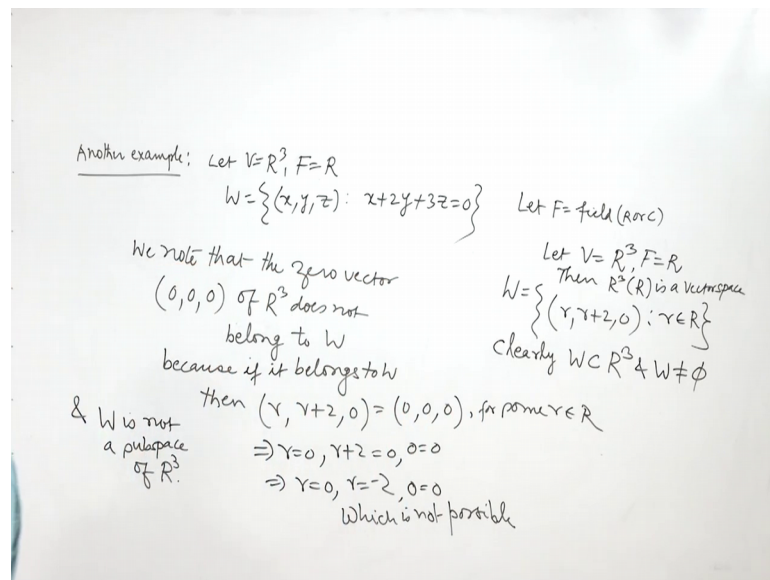 Another example: Let V=R³, F=R
W={(x,y,z): x+2y+3z=0}
Let F= field (R or C)
Let V= R³, F=R
Then R³(R) is a vectorspace
W={(r,r+2,0): r∈R}
Clearly W⊂R³ & W≠φ
We note that the zero vector
(0,0,0) of R³ does not
belong to W
because if it belongs to W
then (r, r+2, 0)=(0,0,0), for some r∈R
⇒ r=0, r+2=0, 0=0
⇒ r=0, r=-2, 0=0
Which is not possible
& W is not
a subspace
of R³.